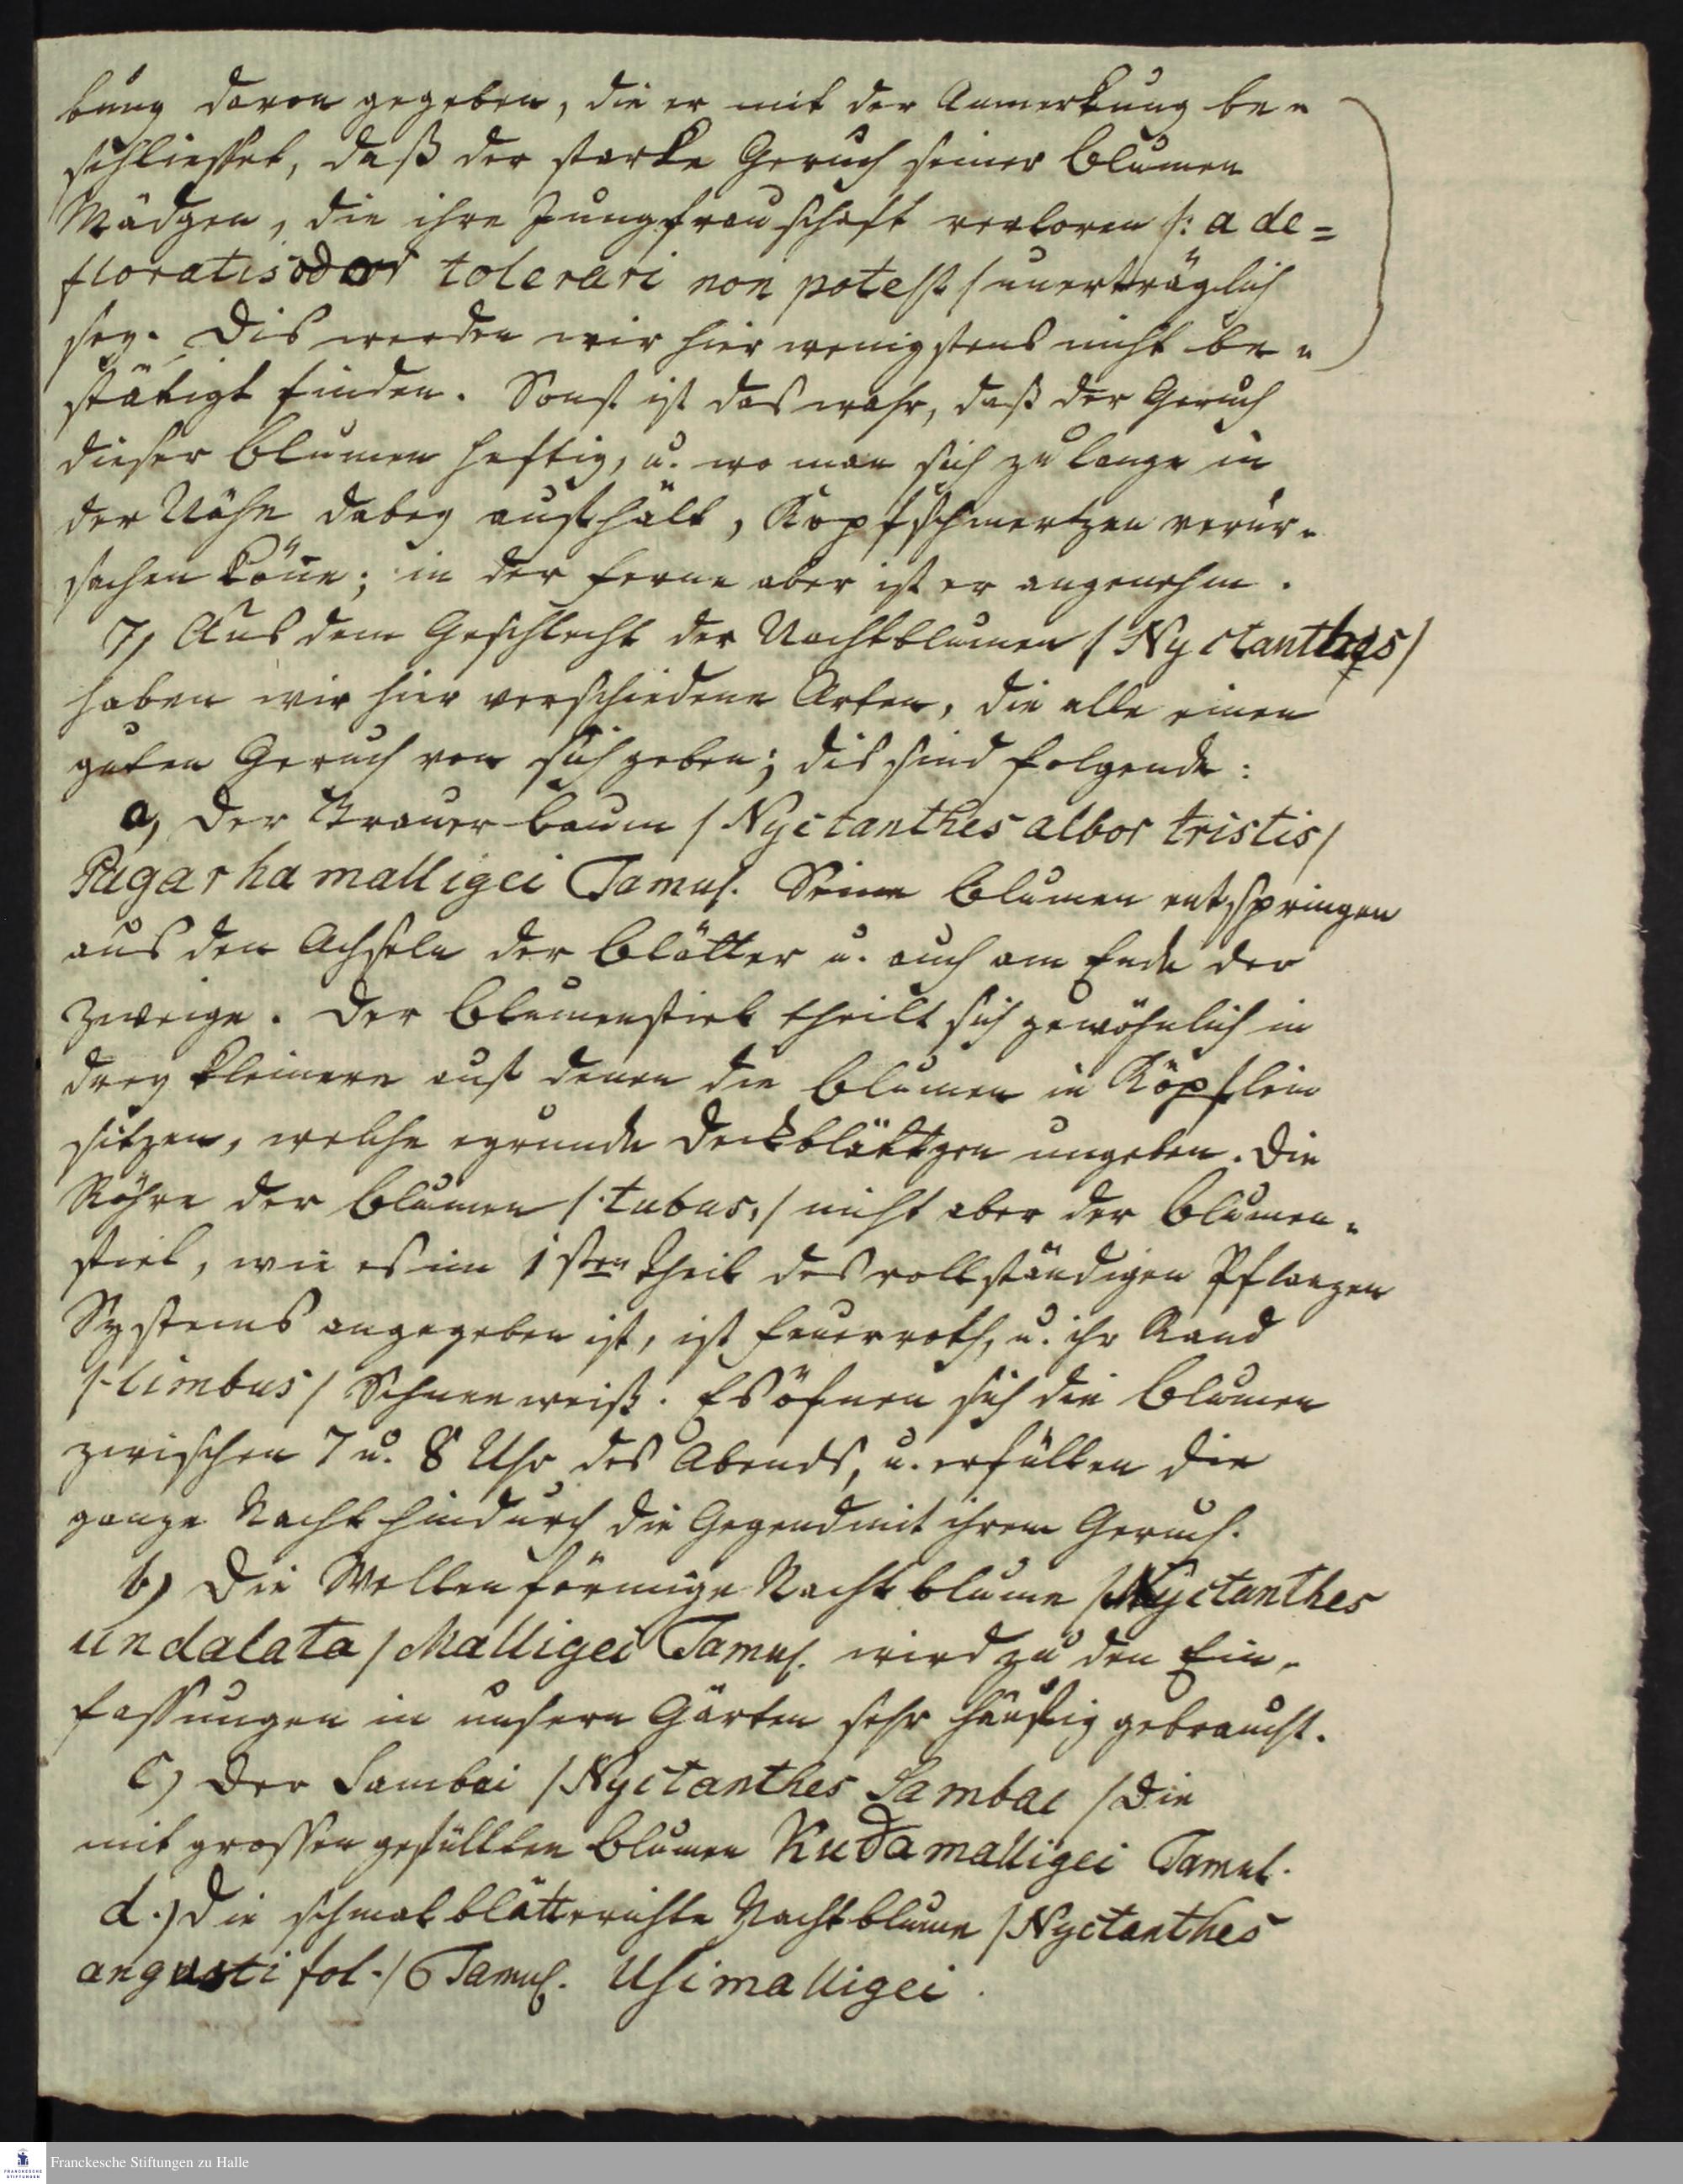 bung davon gegeben, die er mit der Anmerkung be=
schliesset, daß der starke Geruch seiner Blumen
Mädgen, die ihre Jungfrauschaft verloren /: a de=
floratis odor tolerari non potest / unerträglich
sey. Dis werden wir hier wenigstens nicht be=
stätigt finden. Sonst ist das wahr, daß der Geruch
dieser Blumen heftig, u. wo man sich zu lange in
der Nähe dabey aufhält, Kopfschmertzen verur=
sachen köne; in der ferne aber ist er angenehm.
7, Aus dem Geschlecht der Nachtblumen / Nyctanthes /
haben wir hier verschiedene Arten, die alle einen
guten Geruch von sich geben; dis sind folgende:
a, Der Trauerbaum / Nyctanthes albor tristis /
Pagarhamalligei Tamul. Seine Blumen entspringen
aus den Achseln der Blätter u. auch am Ende der
Zweige. Der Blumenstiel theilt sich gewöhnlich in
drey kleinere auf denen die Blumen in Köpflein
sitzen, welche grunde Deckblättgen umgeben. Die
Röhre der Blumen /: tubus, / nicht aber der Blumen=
stiel, wie es im 1sten Theil des vollständigen Pflanzen
Systems angegeben ist, ist feuerroth, u. ihr Rand
/ limbus / Schneeweiß. Es öfnen sich die Blumen
zwischen 7 u. 8 Uhr des Abends, u. erfüllen die
ganze Nacht hindurch die Gegend mit ihrem Geruch.
b, Die Wellenförmige Nachtblume / Nyctanthes
undalata / Malligei Tamul. wird zu den Ein=
fassungen in unsern Gärten sehr häufig gebraucht.
c, Der Sambai / Nyctanthes Sambac / Die
mit grossen gefüllten Blumen Kudamalligei Tamul.
d.) Die schmalblätterichte Nachtblume / Nyctanthes
angustifol. / Tamul. Usimalligei.
Franckesche Stiftungen zu Halle